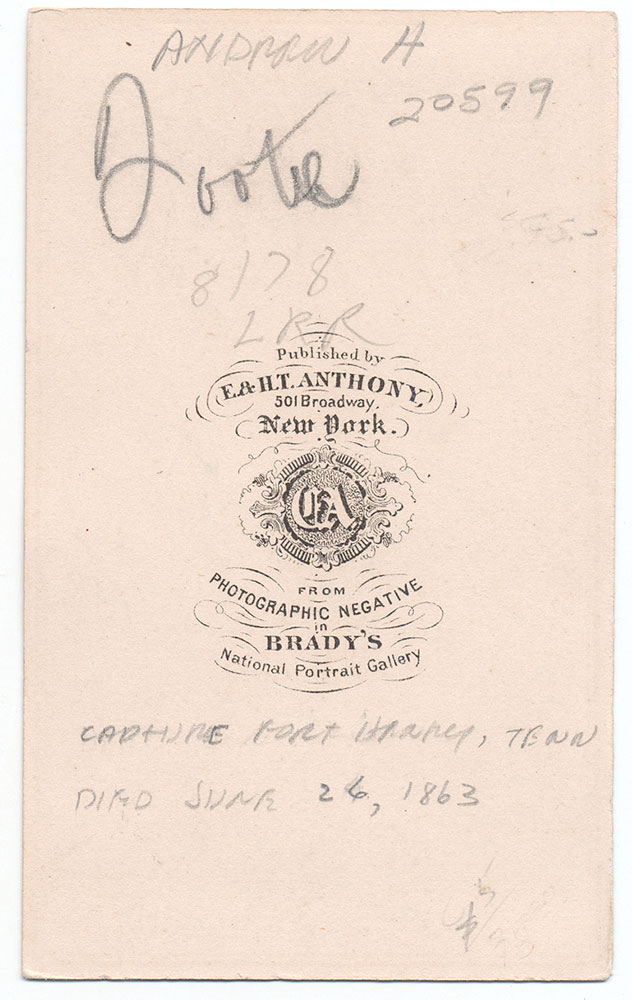 ANDREW H
20599
Foote
8178
LRR
Published by
E. & H.T. ANTHONY,
501 Broadway.
New York.
EA
FROM
PHOTOGRAPHIC NEGATIVE
in
BRADY'S
National Portrait Gallery
CAPTURE FORT HENRY, TENN
DIED JUNE 26, 1863